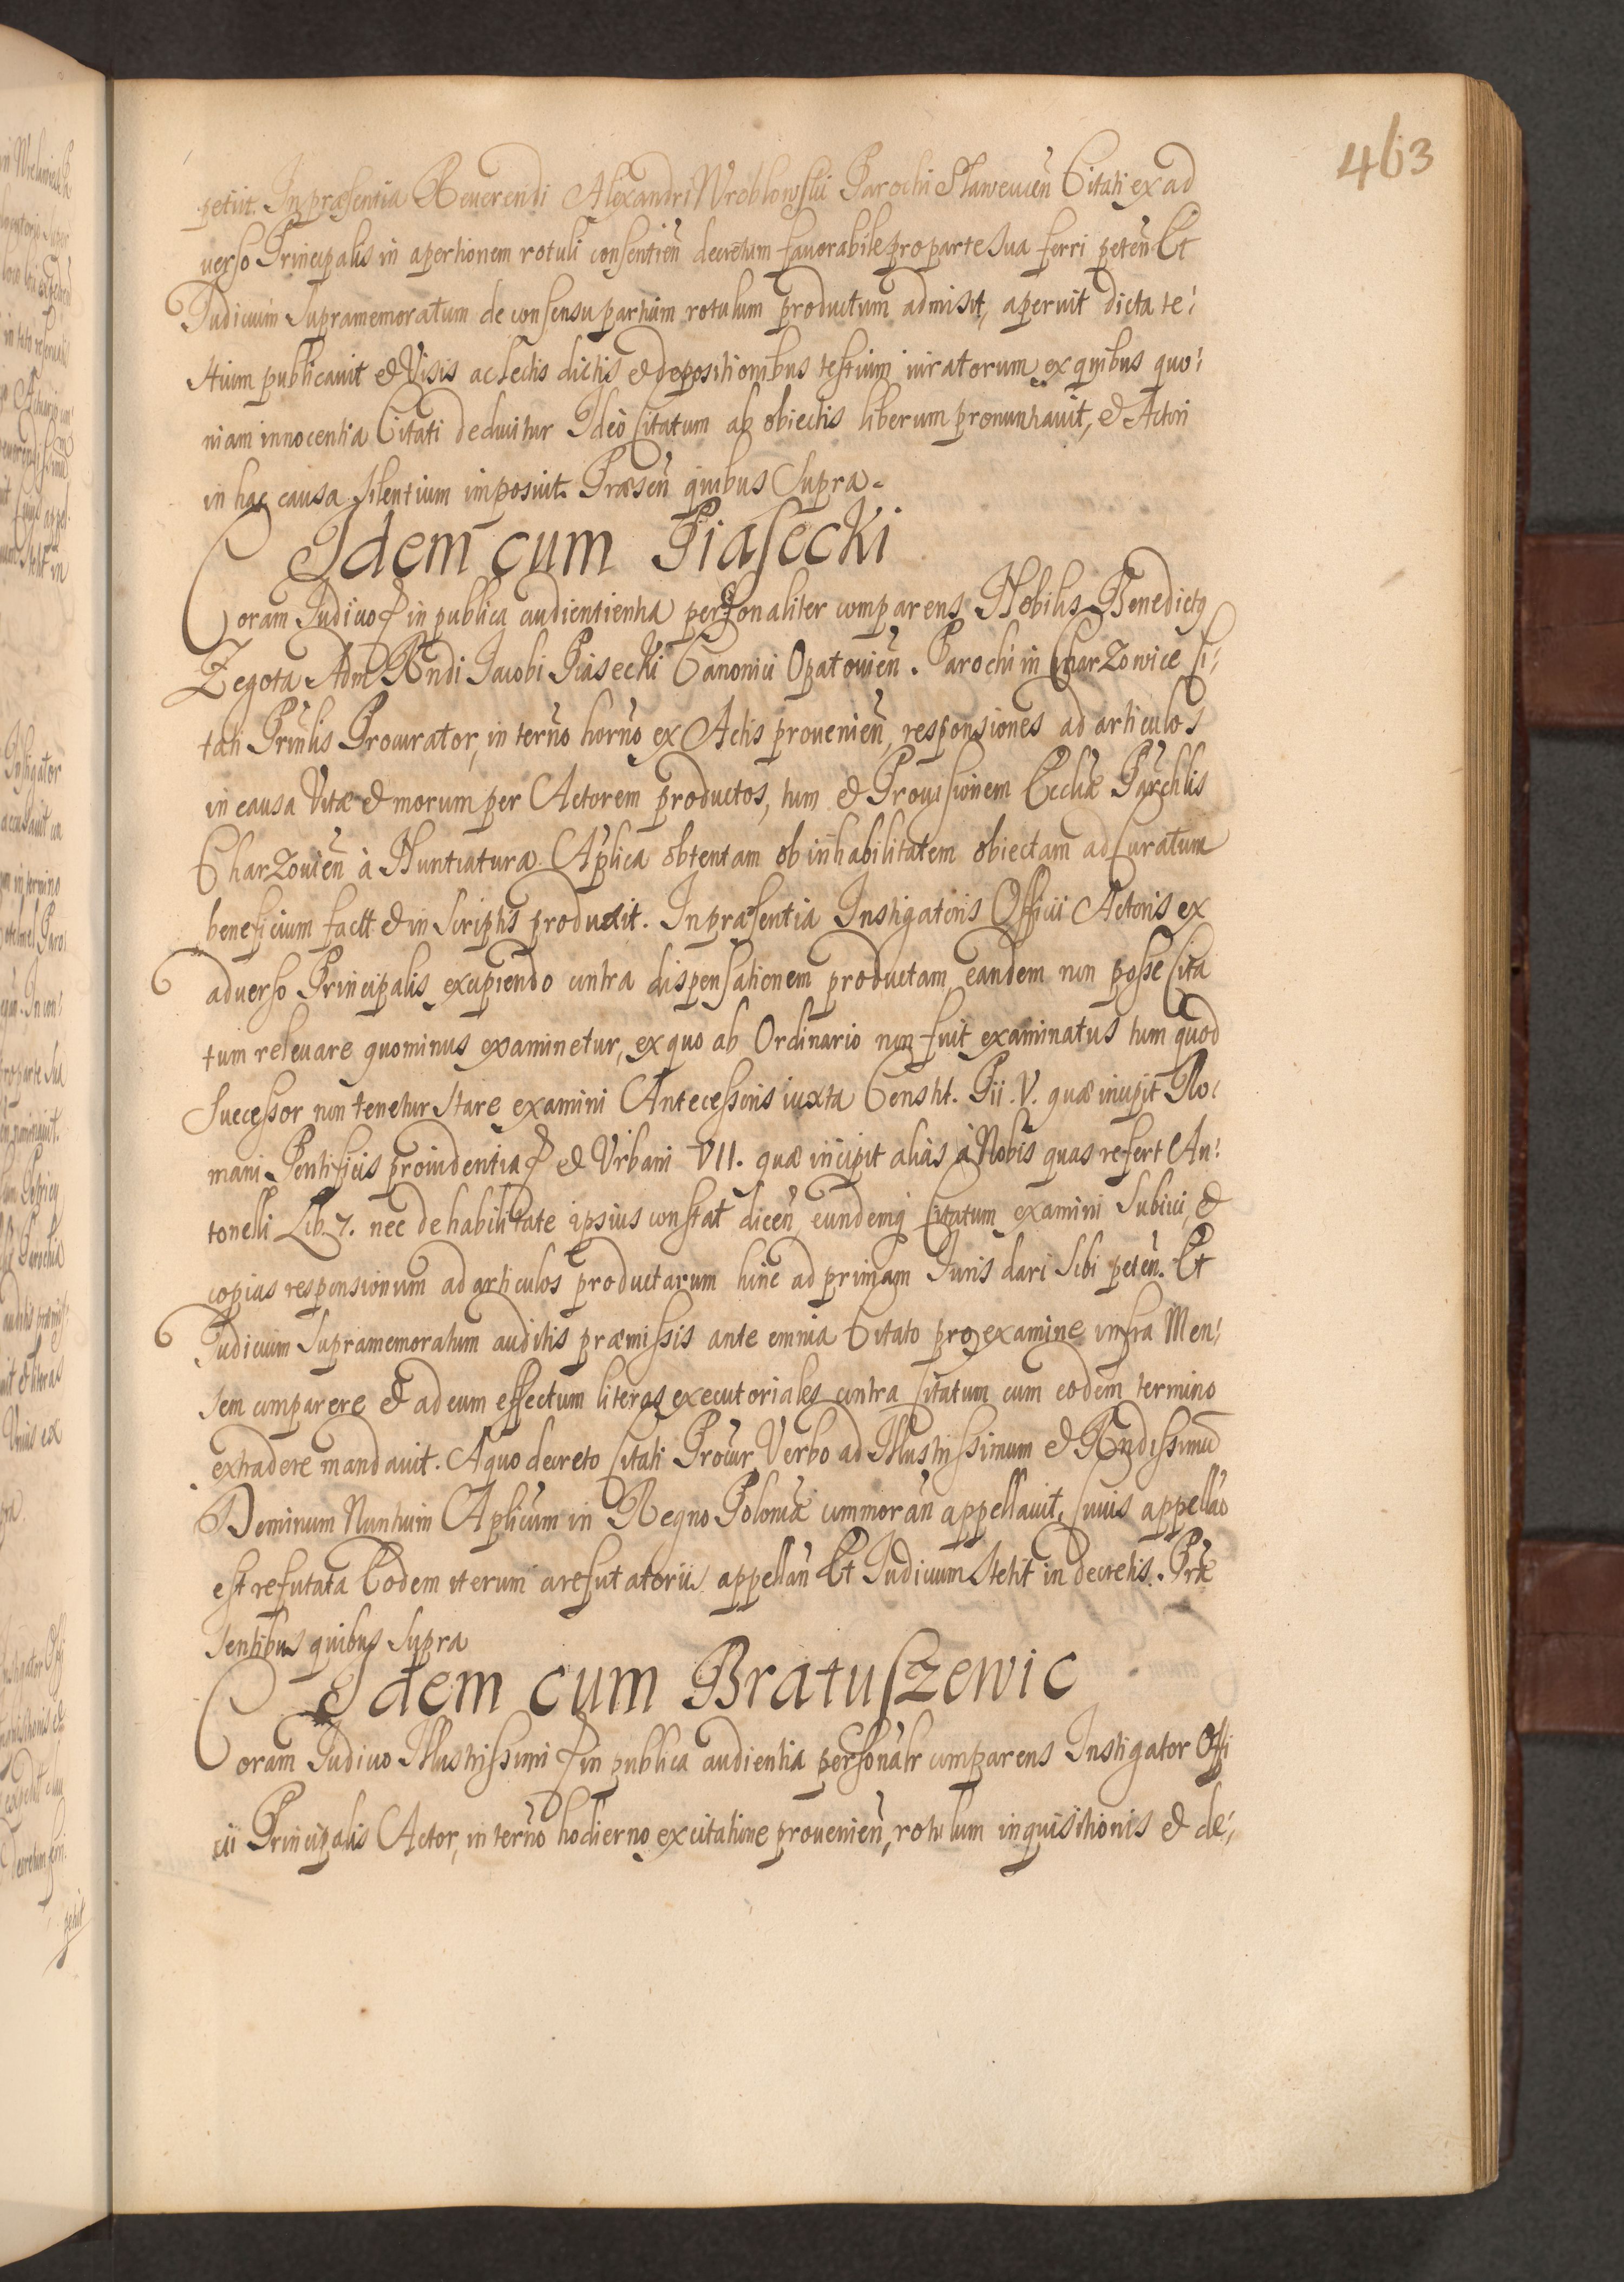 463
petiit. In præsentia Reuerendi Alexandri Wroblowski Parochi Slawewień Citati ex ad
uerso Principalis in apertionem rotuli consentień decretum fauorabile pro parte sua ferri peteń Et
Judicium supramemoratum de consensu partium rotulum productum admisit, aperuit dicta te:
stium publicauit & Visis ac lectis dictis & depositionibus testium iuratorum ex quibus quo:
niam innocentia Citati deducitur Ideò Citatum ab obiectis liberum pronuntiauit, & Actori
in hac causa silentium imposuit. Præseń quibus supra.
Idem cum Piasecki
Coram Judicio & in publica audientientia personaliter comparens Nobilis Benedictq
Zegota Adm Rndi Jacobi Piasecki Canonici Opatouień. Parochi in CharZowice Ci:
tati Prinlis Procurator, in terńo horńo ex Actis prouenień, responsiones ad articulos
in causa Vitæ & morum per Actorem productos, tum & Prouisionem Eccliæ Parchlis
CharZouień à Nuntiatura Aplica obtentam ob inhabilitatem obiectam ad Curatum
beneficium facit & in scriptis produxit. In præsentia Instigatoris Officii Actoris ex
aduerso Principalis excipiendo contra dispensationem productam eandem non posse Cita
tum releuare quominus examinetur, ex quo ab Ordinario non fuit examinatus tum quod
successor non tenetur stare examini Antecessoris iuxta Constit. Pii. V. quæ incipit Ro:
mani Pontificis prouidentia & & Vrbani VII. quæ incipit aliàs à Nobis quas refert An:
tonelli Lib. 7. nec de habilitate ipsius constat diceń, eundemq Citatum examini subiici, &
copias responsionum ad articulos productarum hinc ad primam Juris dari sibi peteń. Et
Judicium supramemoratum auditis præmissis ante omnia Citato pro examine infra Men:
sem comparere & ad eum effectum literas executoriales contra Citatum cum eodem termino
extradere mandauit. A quo decreto Citati Procur Verbo ad Illustrissimum & Rndissimū
Dominum Nuntium Aplicum in Regno Poloniæ commorań appellauit, cuius appellao
est refutata Eodem iterum a refutatorii appellań Et Judicium stetit in decretis. Præ
sentibus quibus supra
Idem cum Bratuszewic
Coram Judicio Illustrissimi & in publica audientia personalr comparens Instigator Offi
cii Principalis Actor, in terńo hodierno ex citatione prouenień, rotulum inquisitionis & de: